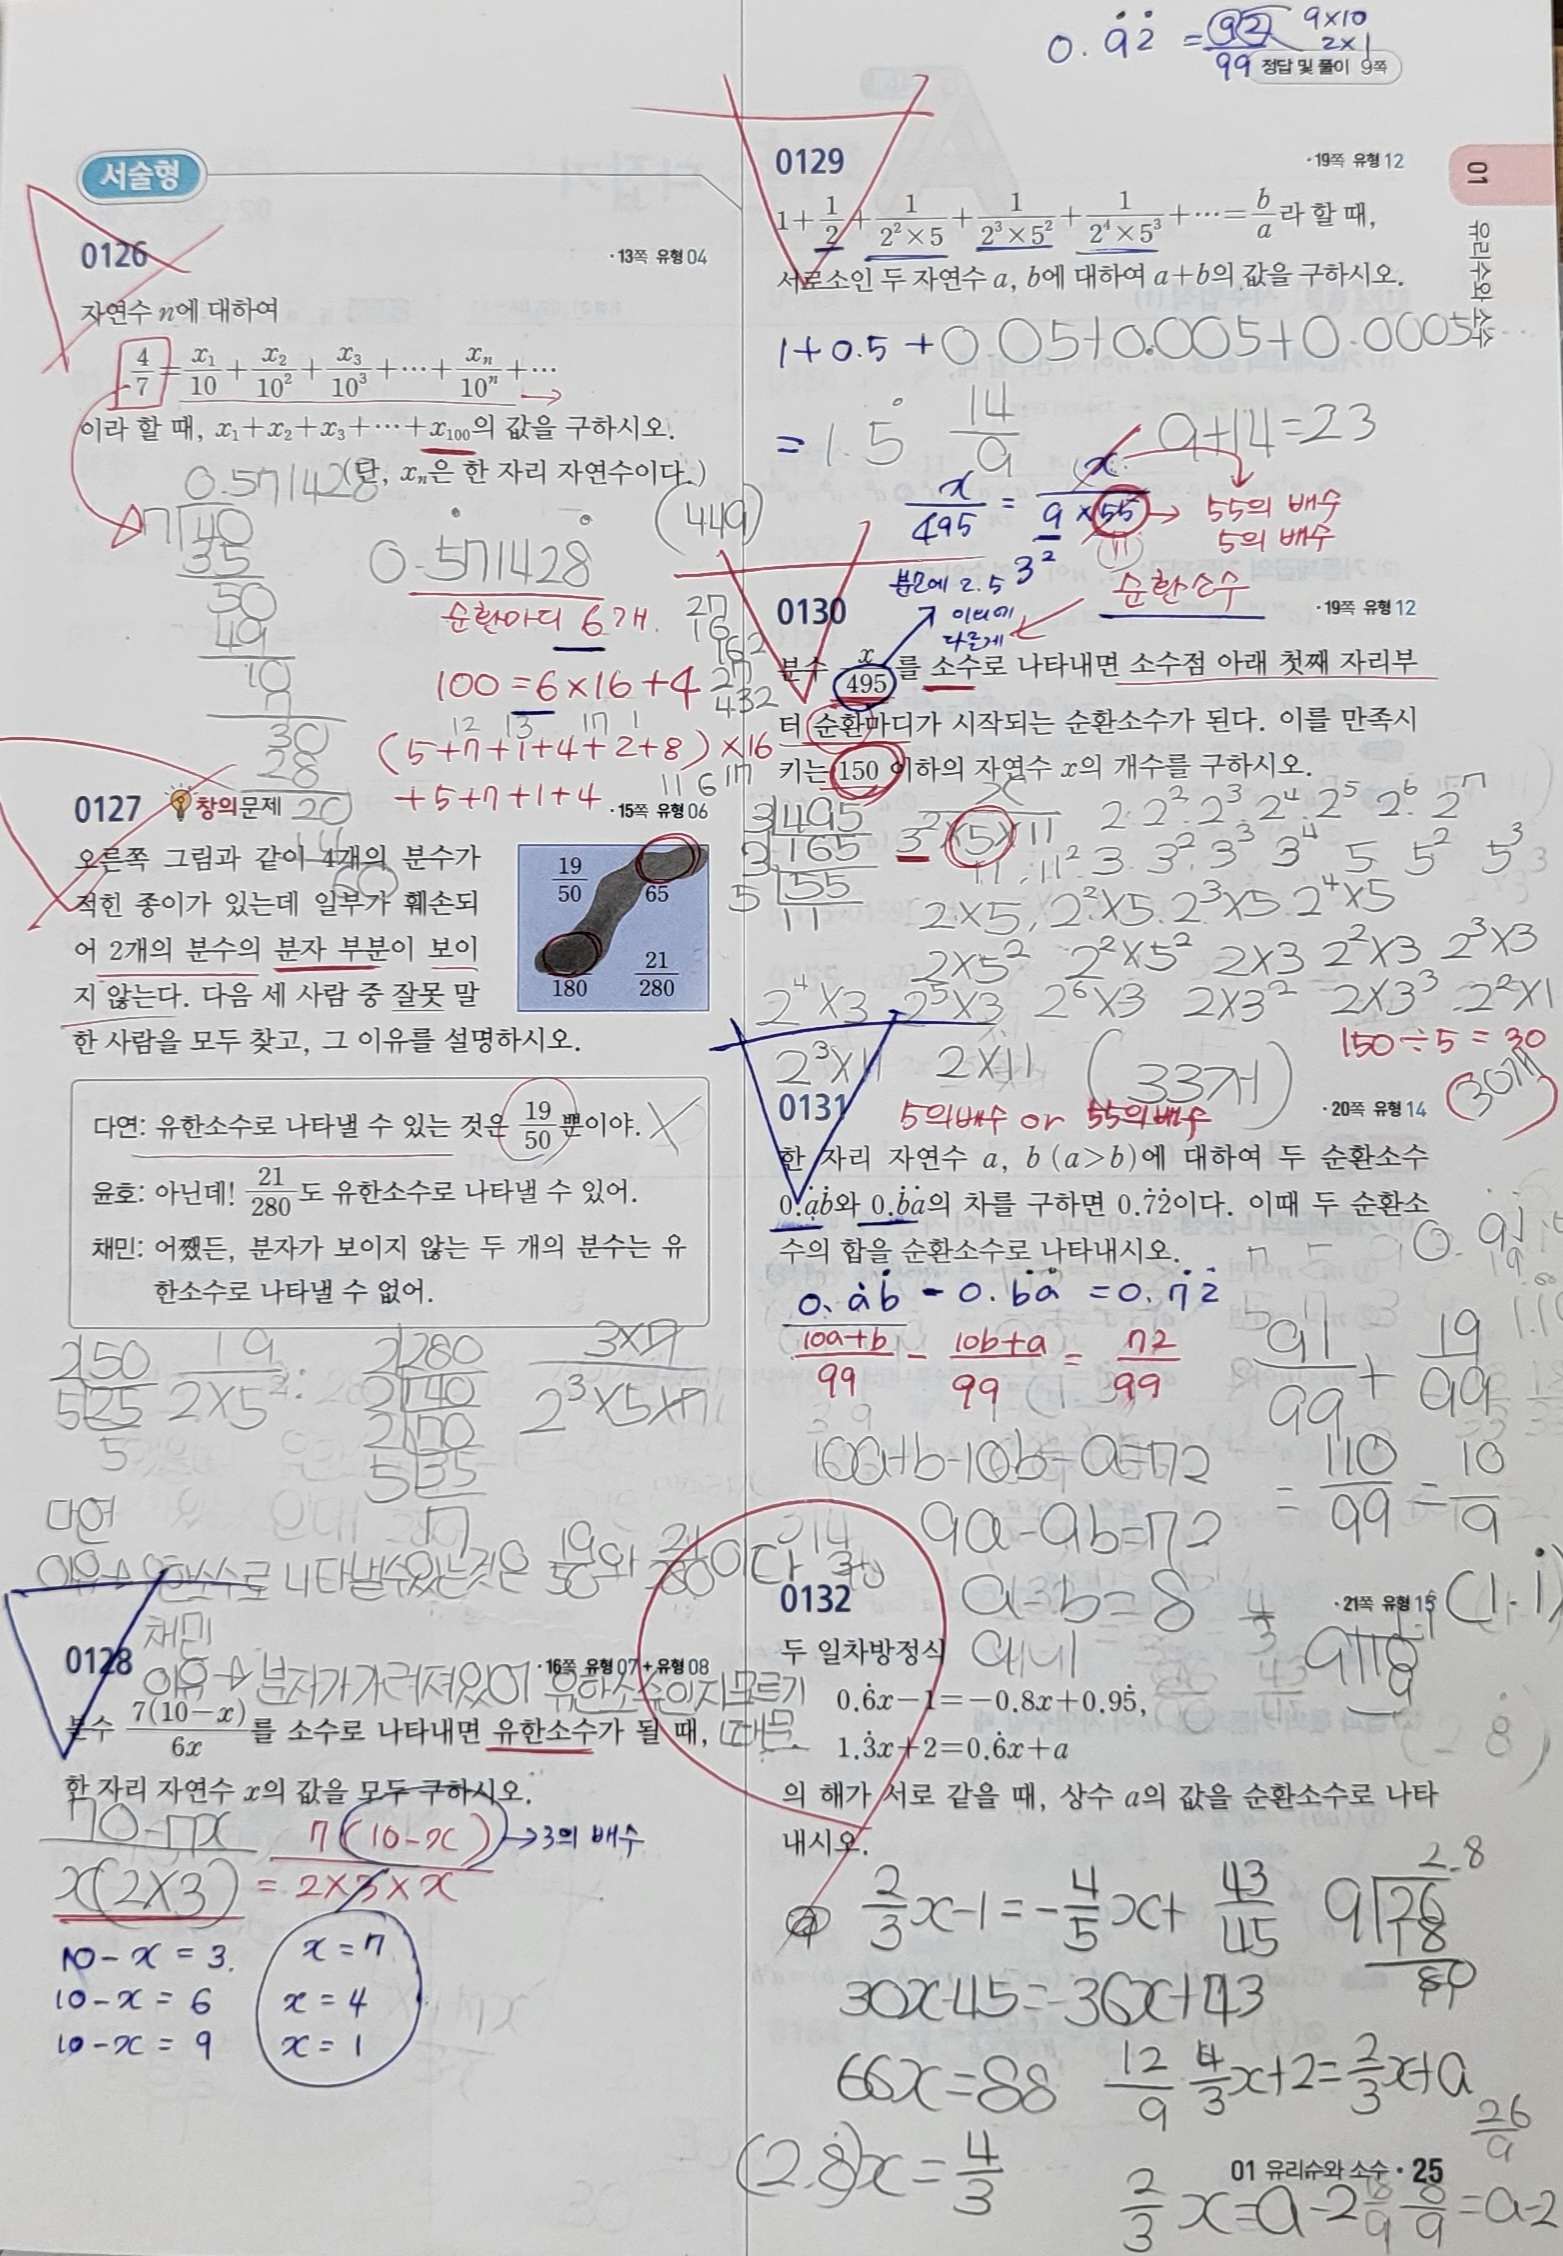 0.9̇2̇ = 92/99 9×10
2×1
정답 및 풀이 9쪽
서술형
0126 ·13쪽 유형 04
자연수 n에 대하여
4/7 = x₁/10 + x₂/10² + x₃/10³ + ⋯ + xₙ/10ⁿ + ⋯
이라 할 때, x₁+x₂+x₃+⋯+x₁₀₀의 값을 구하시오.
(단, xₙ은 한 자리 자연수이다.)
0.571428
7 40
35
50
49
10
7
30
28
20
14
60
0.5̇71428̇
(449)
순환마디 6개.
100 = 6×16+4
(5+7+1+4+2+8)×16
+5+7+1+4
27
16
162
27
432
0127 창의문제 ·15쪽 유형 06
오른쪽 그림과 같이 4개의 분수가
적힌 종이가 있는데 일부가 훼손되
어 2개의 분수의 분자 부분이 보이
지 않는다. 다음 세 사람 중 잘못 말
한 사람을 모두 찾고, 그 이유를 설명하시오.
19/50 65
180 21/280
다연: 유한소수로 나타낼 수 있는 것은 19/50뿐이야. X
윤호: 아닌데! 21/280도 유한소수로 나타낼 수 있어.
채민: 어쨌든, 분자가 보이지 않는 두 개의 분수는 유
한소수로 나타낼 수 없어.
2 50
5 25
5
19/2×5²
2 280
2 140
2 70
5 35
7
3×7/2³×5×7
다연
이유→유한소수로 나타낼수있는것은 19/50와 21/280이다
채민
이유→분자가 가려져있어 유한소수인지 모르기
때문.
0128 ·16쪽 유형 07+유형 08
분수 7(10−x)/6x를 소수로 나타내면 유한소수가 될 때,
한 자리 자연수 x의 값을 모두 구하시오.
70-7x/x(2×3) = 7(10-x)/2×3×x →3의 배수
10-x=3. x=7
10-x=6 x=4
10-x=9 x=1
0129 ·19쪽 유형 12
1+1/2+1/2²×5+1/2³×5²+1/2⁴×5³+⋯=b/a라 할 때,
서로소인 두 자연수 a, b에 대하여 a+b의 값을 구하시오.
1+0.5+0.05+0.005+0.0005
=1.5̇ 14/9 9+14=23
x/495 = x/9×55 → 55의 배수
5의 배수
3²
(11)
분모에 2.5
이외에
다른게
순환소수
0130 ·19쪽 유형 12
분수 x/495를 소수로 나타내면 소수점 아래 첫째 자리부
터 순환마디가 시작되는 순환소수가 된다. 이를 만족시
키는 150 이하의 자연수 x의 개수를 구하시오.
3 495
3 165
5 55
11
x/3²×5×11
2. 2². 2³. 2⁴. 2⁵ 2⁶. 2⁷
11. 11². 3. 3². 3³ 3⁴ 5 5² 5³
2×5, 2²×5. 2³×5 2⁴×5
2×5² 2²×5² 2×3 2²×3 2³×3
2⁴×3 2⁵×3 2⁶×3 2×3² 2×3³ 2²×1
2³×11 2×11 (33개)
150÷5=30
(30개)
5의배수 or 55의배수
0131 ·20쪽 유형 14
한 자리 자연수 a, b (a>b)에 대하여 두 순환소수
0.ȧḃ와 0.ḃȧ의 차를 구하면 0.7̇2̇이다. 이때 두 순환소
수의 합을 순환소수로 나타내시오.
0.ȧḃ - 0.ḃȧ = 0.7̇2̇
10a+b/99 - 10b+a/99 = 72/99
10a+b-10b-a=72
9a-9b=72
a-b=8
91/99 + 19/99
= 110/99 = 10/9
(1.1̇)
0132 ·21쪽 유형 15
두 일차방정식
0.6̇x−1=−0.8x+0.95̇,
1.3̇x+2=0.6̇x+a
의 해가 서로 같을 때, 상수 a의 값을 순환소수로 나타
내시오.
(2.8̇)
2/3x-1=-4/5x+43/45
30x-45=-36x+43
66x=88
x=4/3
(2.8̇)
9 26
2.8
18
80
12/9 4/3x+2=2/3x+a
26/9
2/3x=a-2 8/9=a-2
01 유리수와 소수 · 25
01 유리수와 소수